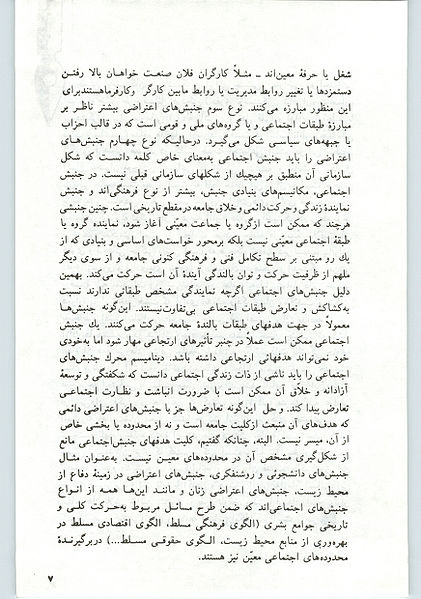 شغل یا حرفهٔ معین‌اند ــ مثلاً کارگران فلان صنعت خواهان بالا رفتن
دستمزدها یا تغییر روابط مدیریت یا روابط مابین کارگر وکارفرماهستندبرای
این منظور مبارزه می‌کنند. نوع سوم جنبش‌های اعتراضی بیشتر ناظر بر
مبارزهٔ طبقات اجتماعی و یا گروه‌های ملی و قومی است که در قالب احزاب
یا جبهه‌های سیاسی شکل می‌گیرد. درحالیکه نوع چهارم جنبش‌های
اعتراضی را باید جنبش اجتماعی به‌معنای خاص کلمه دانست که شکل
سازمانی آن منطبق بر هیچیك از شکلهای سازمانی قبلی نیست. در جنبش
اجتماعی، مکانیسم‌های بنیادی جنبش، بیشتر از نوع فرهنگی‌اند و جنبش
نمایندهٔ زندگی و حرکت دائمی و خلاق جامعه در مقطع تاریخی است. چنین جنبشی
هرچند که ممکن است ازگروه یا جماعت معیّنی آغاز شود، نماینده گروه یا
طبقهٔ اجتماعی معیّنی نیست بلکه برمحور خواست‌های اساسی و بنیادی که از
یك رو مبتنی بر سطح تکامل فنی و فرهنگی کنونی جامعه و از سوی دیگر
ملهم از ظرفیت حرکت و توان بالندگی آیندهٔ آن است حرکت می‌کند. بهمین
دلیل جنبش‌های اجتماعی اگرچه نمایندگی مشخص طبقاتی ندارند نسبت
به‌کشاکش و تعارض طبقات اجتماعی بی‌تفاوت‌نیستند. این‌گونه جنبش‌ها
معمولاً در جهت هدفهای طبقات بالندهٔ جامعه حرکت می‌کنند. یك جنبش
اجتماعی ممکن است عملاً در چنبر تأثیرهای ارتجاعی مهار شود اما به‌خودی
خود نمی‌تواند هدفهائی ارتجاعی داشته باشد. دینامیسم محرك جنبش‌های
اجتماعی را باید ناشی از ذات زندگی اجتماعی دانست که شکفتگی و توسعهٔ
آزادانه و خلاّق آن ممکن است با ضرورت انباشت و نظارت اجتماعی
تعارض پیدا کند. و حل این‌گونه تعارض‌ها جز با جنبش‌های اعتراضی دائمی
که هدف‌های آن منبعث ازکلیت جامعه است و نه از محدوده یا بخشی خاص
از آن، میسر نیست. البته، چنانکه گفتیم، کلیت هدفهای جنبش‌اجتماعی مانع
از شکل‌گیری مشخص آن در محدوده‌های معین نیست. به‌عنوان مثال
جنبش‌های دانشجوئی و روشنفکری، جنبش‌های اعتراضی در زمینهٔ دفاع از
محیط زیست، جنبش‌های اعتراضی زنان و مانند این‌ها همه از انواع
جنبش‌های اجتماعی‌اند که ضمن طرح مسائل مربوط به‌حرکت کلی و
تاریخی جوامع بشری (الگوی فرهنگی مسلط، الگوی اقتصادی مسلط در
بهره‌وری از منابع محیط زیست، الگوی حقوقی مسلط...) دربرگیرندهٔ
محدوده‌های اجتماعی معیّن نیز هستند.
۷